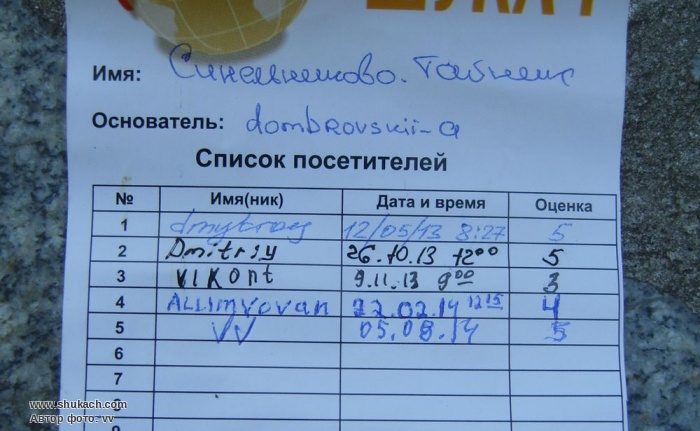 ШУКАЧ
Имя: Синельниково. Тайник
Основатель: dombrovskii-a
Список посетителей
№ Имя(ник) Дата и время Оценка
1 dmytroy 12/05/13 8:27 5
2 Dmitrsy 26.10.13 12⁰⁰ 5
3 VIKont 9.11.13 9⁰⁰ 3
4 ALLIMVovan 22.02.14 12¹⁵ 4
5 VV 05.08.14 5
6
7
8
9
www.shukach.com
Автор фото: vv